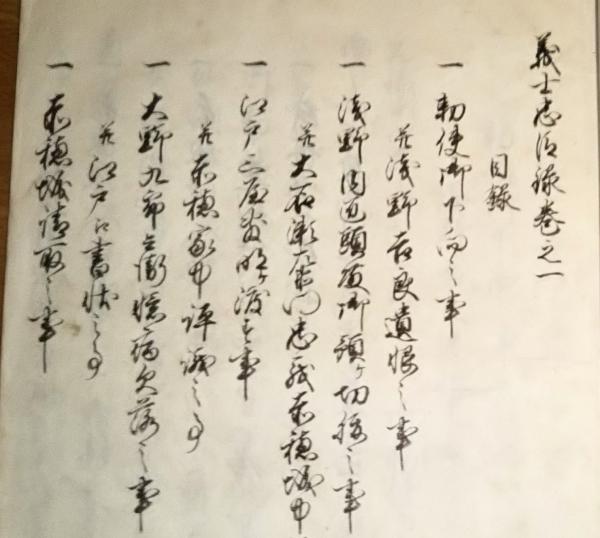 義士忠信録巻之一
目録
一 勅使御下向之事
并浅野吉良遺恨之事
一 浅野内匠頭殿御預ヶ切腹之事
并大石瀬左衛門忠 赤穂城中
一 江戸上屋敷明ヶ渡之事
并赤穂家中評議之事
一 大野九郎兵衛臆病欠落之事
并江戸江書状之事
一 赤穂城請取之事